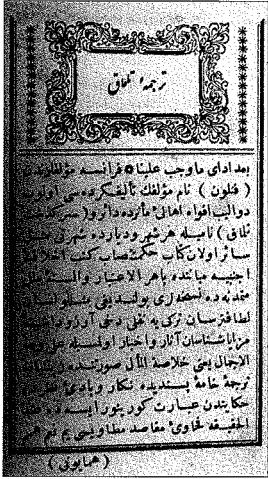 ترجمهٔ تلماق
بعد ادای ماوجب علینا فرانسه مؤلفلرندن
(فنلون) نام مؤلفك تألیفکرده سی اولوب
دوالیب افواه اهالی مأثرده دائر و (سرکذشت
تلماق) نامیله هر شهر و دیارده شهرتی
سائر اولان کتاب حکمت نصاب کتب اخلاقیۀ
اجنبیه میاننده باهر الاعتبار والسنۀ ملل
متعدده ده نسخه لری بولندیغی مثللو لسان
لطافترسان ترکی یه نقلی دخی آرزو
مزایاشناسان آثار و اخبار اولمسیله علی وجه
الاجمال یعنی خلاصة المآل صورتنده
ترجمه خامۀ پسندیده نکار و بادئ نظرده
حکایه دن عبارت کورینور ایسه ده عند
الحقیقه فحوای مقاصد مطاویسی
(همایونی)